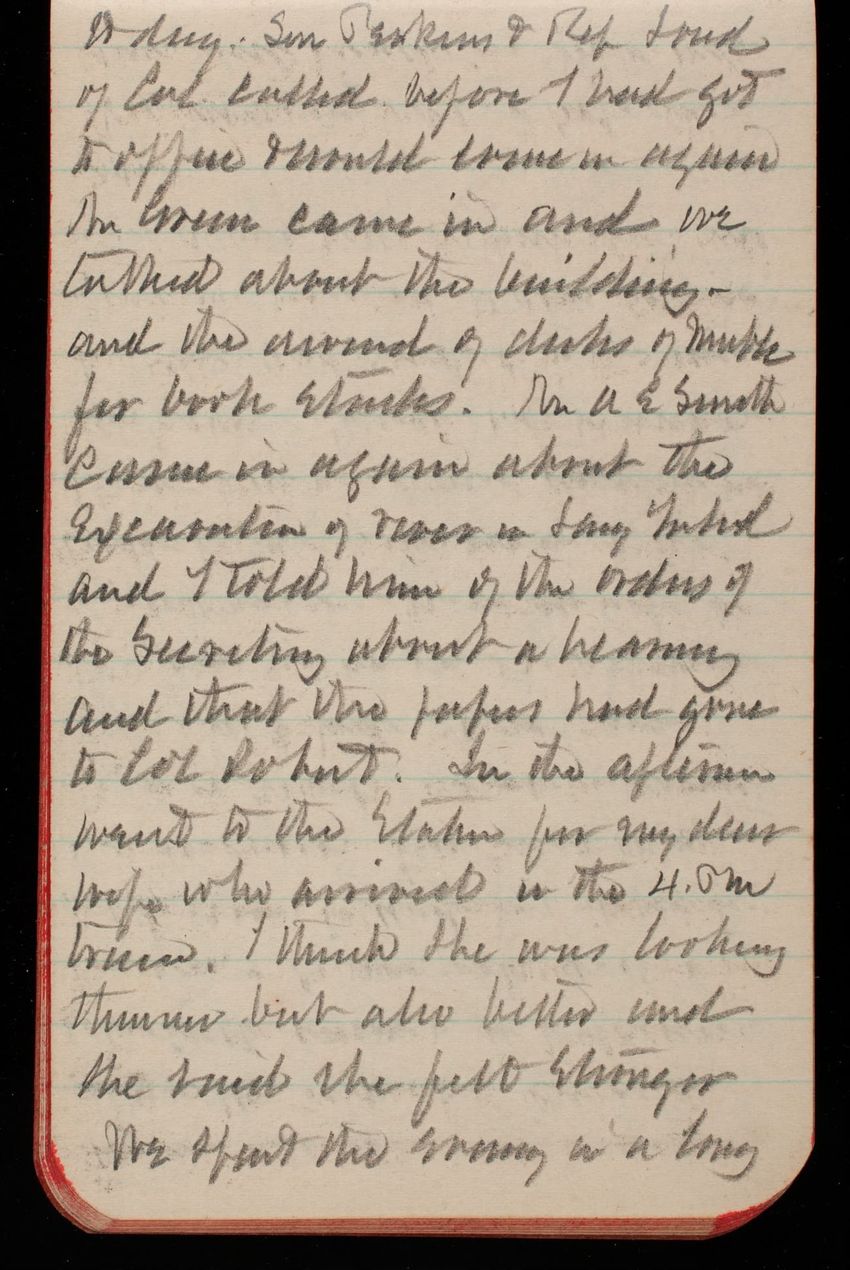 today. Sen Perkins & Rep Loud
of Cal called before I had got
to office & would come in again
Mr Green came in and we
talked about the building -
and the award of of
for book stacks. Mr A E Smith
came in again about the
Excavation of river in
and I told him of the orders of
the Secretary about a hearing
and that the papers had gone
to Col Robert. In the afternoon
went to the Station for my dear
wife who arrived in the 4. PM
train. I think she was looking
thinner but also better and
she said she felt stronger
We spent the evening in a long